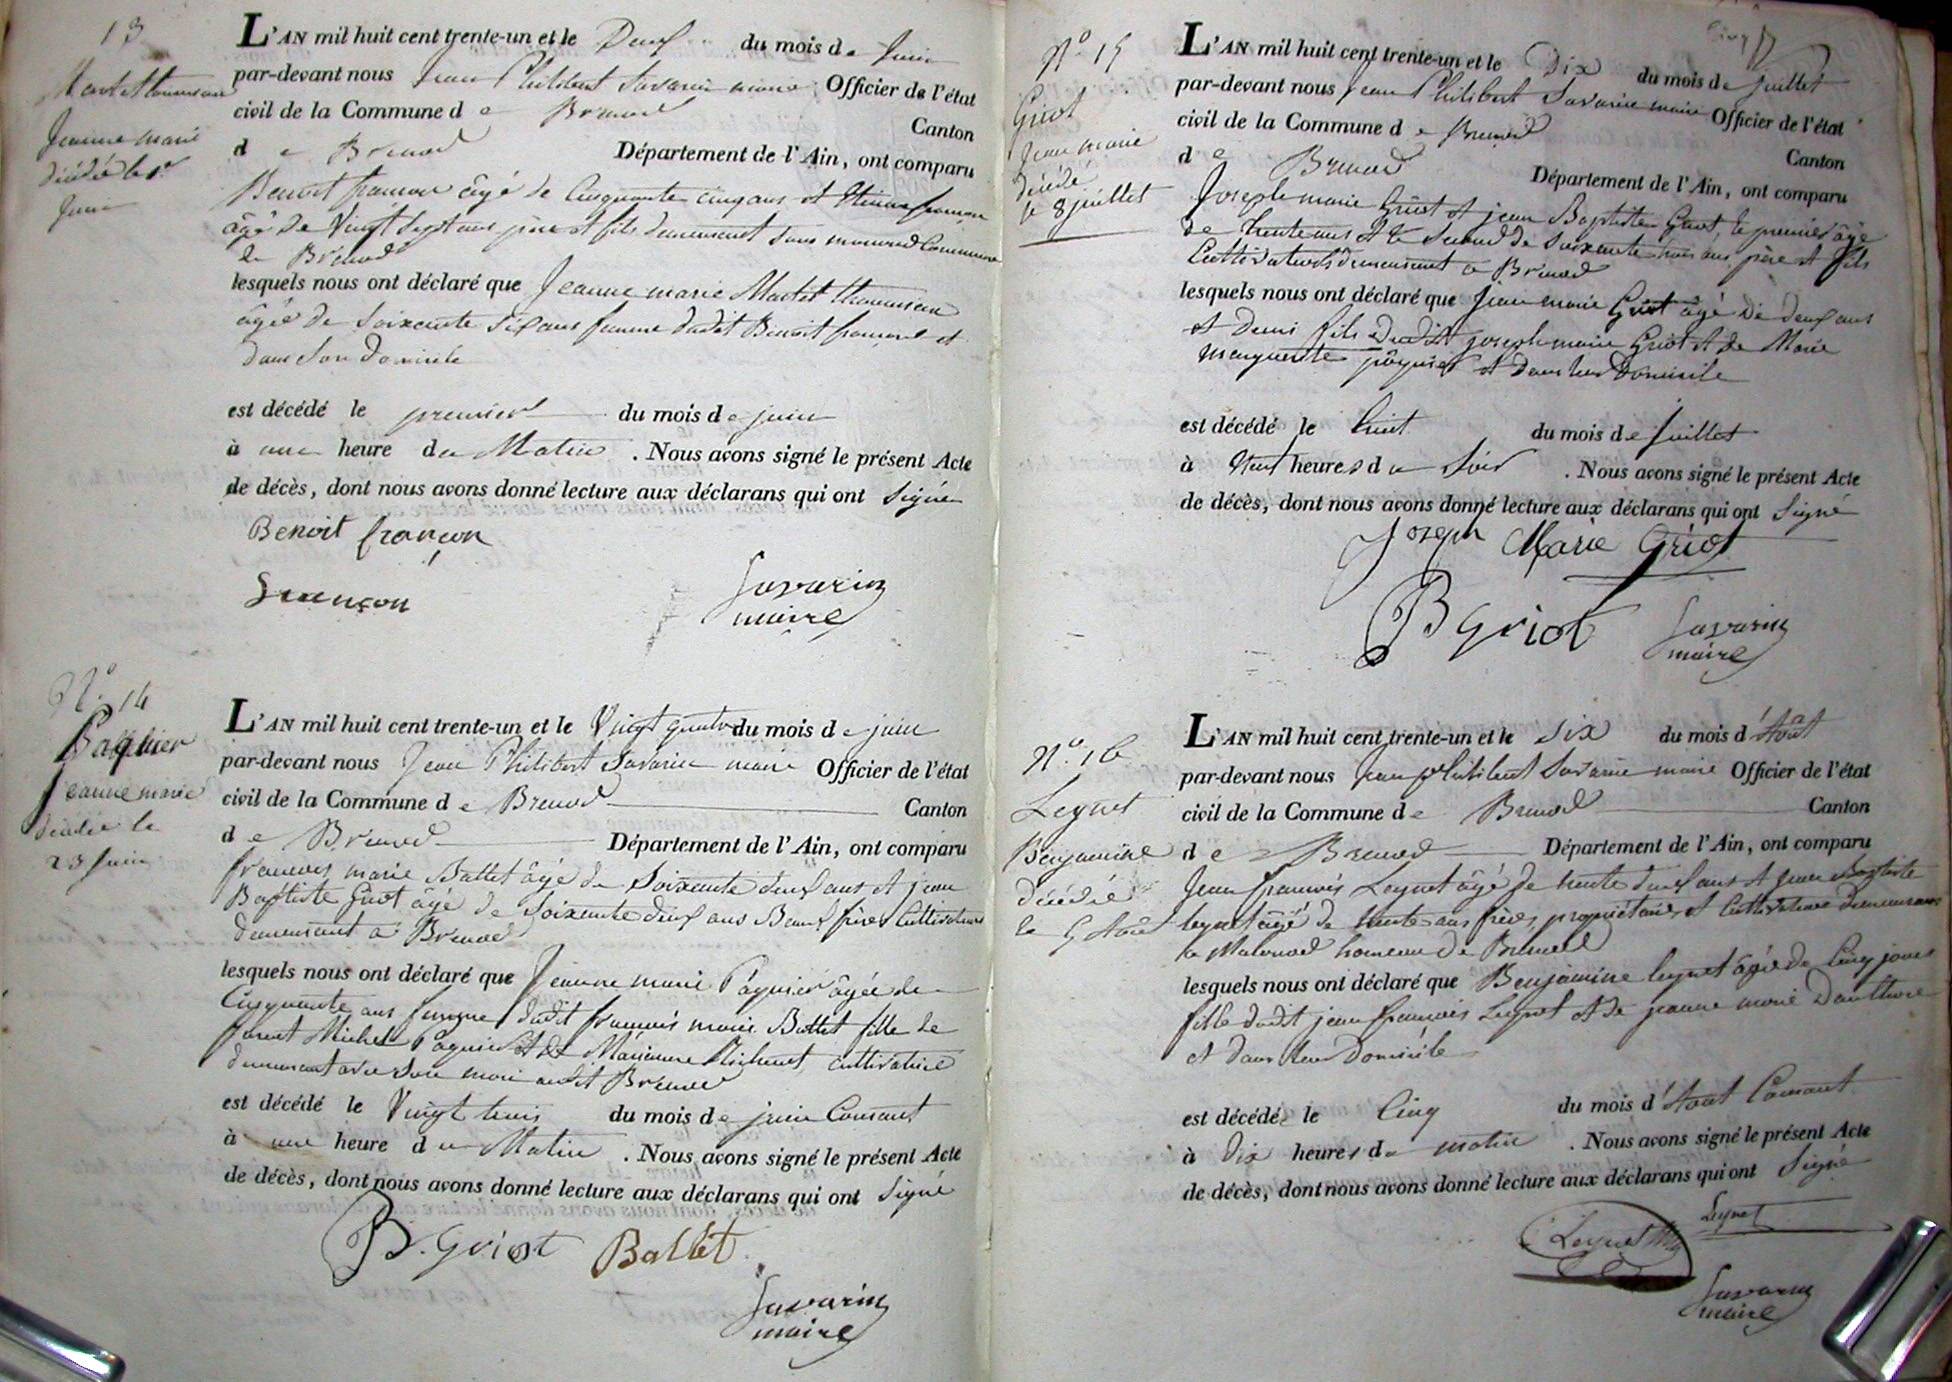 13
Jeanne marie
décédée le 1er
juin
L'AN mil huit cent trente-un et le Deux du mois de juin
par-devant nous Jean Philibert Savarin maire Officier de l'état
civil de la Commune de Brenod Canton
de Brenod Département de l'Ain, ont comparu
Benoit françon âgé de Cinquante cinq ans et Etienne françon
âgé de Vingt Sept ans père et fils demeurant Commune
de Brenod
lesquels nous ont déclaré que Jeanne marie Martet
âgée de Soixante Six ans femme dudit Benoit françon et
dans Son Domicile
est décédé le premier du mois de juin
à une heure du Matin . Nous avons signé le présent Acte
de décès, dont nous avons donné lecture aux déclarans qui ont Signé
Benoit françon
françon
Savarin
maire
N.° 14
Paquier
jeanne marie
décédée le
23 Juin
L'AN mil huit cent trente-un et le Vingt quatre du mois de juin
par-devant nous Jean Philibert Savarin maire Officier de l'état
civil de la Commune de Brenod Canton
de Brenod Département de l'Ain, ont comparu
françois marie Ballet âgé de Soixante deux ans et jean
Baptiste Griot âgé de Soixante deux ans Beaux frères Cultivateurs
demeurant à Brenod
lesquels nous ont déclaré que Jeanne marie Pâquier âgée de
Cinquante ans femme dudit françois marie Ballet fille de
Michel Paquier et de Marianne cultivatrice
demeurant avec Son mari audit Brenod
est décédé le Vingt trois du mois de juin Courant
à une heure du Matin . Nous avons signé le présent Acte
de décès, dont nous avons donné lecture aux déclarans qui ont Signé
B. Griot Ballet
Savarin
maire
N.° 15
Griot
Jean marie
décédé
le 8 juillet
L'AN mil huit cent trente-un et le Dix du mois de juillet
par-devant nous Jean Philibert Savarin maire Officier de l'état
civil de la Commune de Brenod Canton
de Brenod Département de l'Ain, ont comparu
Joseph marie Griot et jean Baptiste Griot, le premier âgé
de trente ans et le Second de Soixante trois ans père et fils
Cultivateurs demeurant à Brenod
lesquels nous ont déclaré que Jean marie Griot âgé de deux ans
et demi fils dudit joseph marie Griot et de Marie
marguerite pâquier et dans leur Domicile
est décédé le huit du mois de juillet
à heures du Soir . Nous avons signé le présent Acte
de décès, dont nous avons donné lecture aux déclarans qui ont Signé
Joseph Marie Griot
B Griot
Savarin
maire
N.° 16
Leynet
Benjamine
décédée
le 5 Aout
L'AN mil huit cent trente-un et le Six du mois d'Aout
par-devant nous Jean philibert Savarin maire Officier de l'état
civil de la Commune de Brenod Canton
de Brenod Département de l'Ain, ont comparu
Jean françois Leynet âgé de trente deux ans et Jean Baptiste
leynet âgé de trente ans frères, propriétaires et Cultivateurs demeurans
à hameau de Brenod
lesquels nous ont déclaré que Benjamine leynet âgée de Cinq jours
fille dudit jean françois Leynet et de jeanne marie
et dans leur Domicile
est décédé le Cinq du mois d'Aout Courant
à Dix heures du matin . Nous avons signé le présent Acte
de décès, dont nous avons donné lecture aux déclarans qui ont Signé
Leynet
Leynet
Savarin
maire